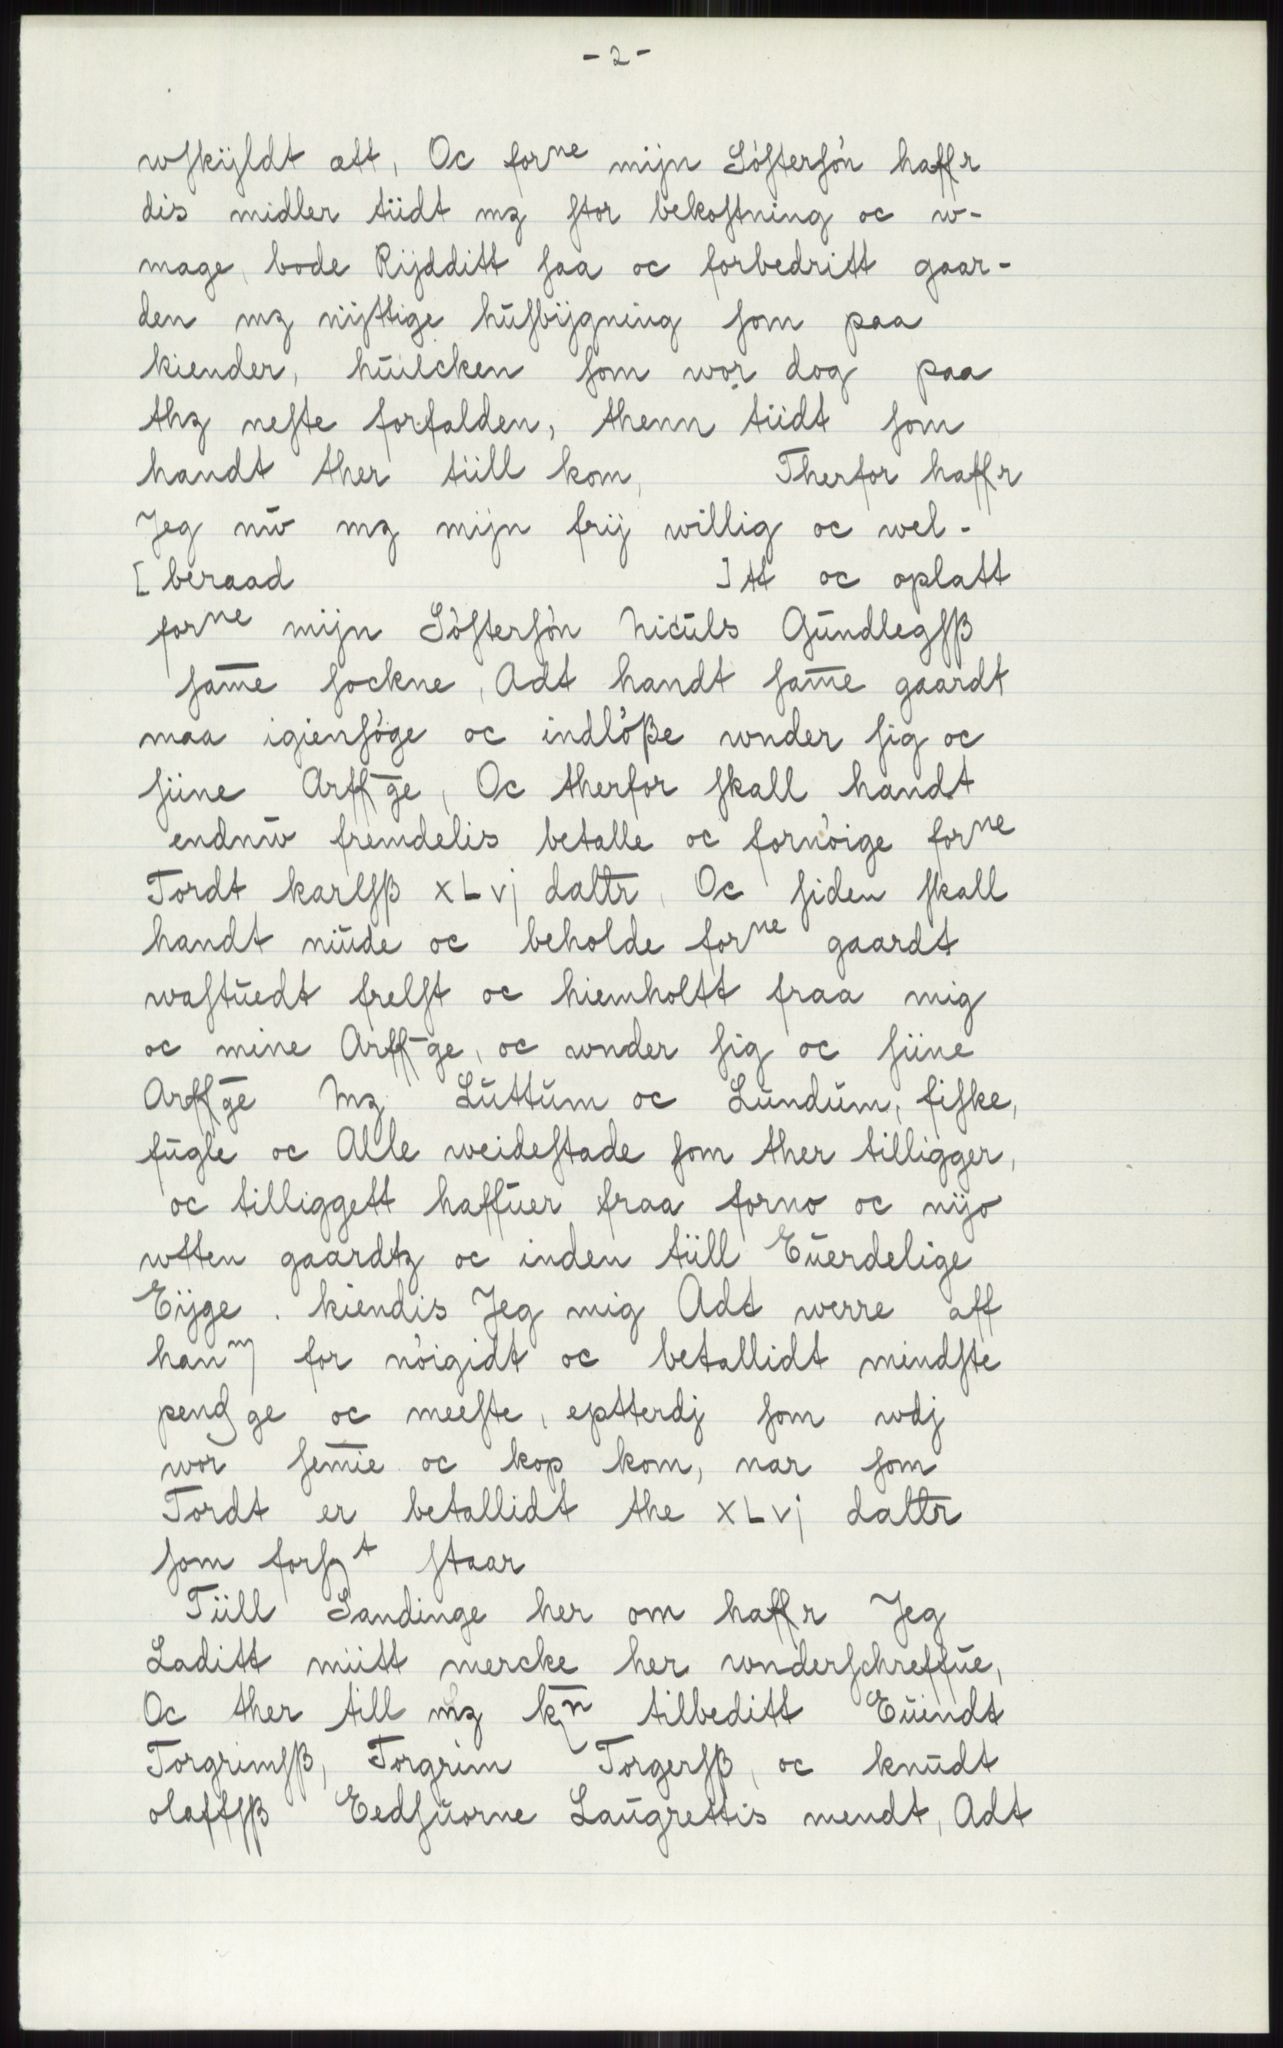 - 2 -
wſkÿldt ætt, Oc forne mijn Söſterſön haffr
dis midler tiidt mz ſtor bekoſtning oc w-
mage, bode Rijdditt ſaa oc forbedritt gaar-
den mz nÿttige huſbijgning ſom paa
kiender, huilcken ſom wor dog paa
thz neſte forfalden, thenn tiidt ſom
handt ther tiill kom, Therfor haffr
Jeg nw mz mijn frij willig oc wel-
[beraad ]tt oc oplatt
forne mijn Söſterſön Niculs Gundlegſß
ſam̅e ſockne, Adt handt ſam̅e gaardt
maa igienſöge oc indlöße wnder ſig oc
ſiine Arff̅ge, Oc therfor ſkall handt
endnw fremdelis betalle oc fornöige forne
Tordt karlſß xLvj daltr, Oc ſiden ſkall
handt niude oc beholde forne gaardt
waſtuedt frelſt oc hiemholtt fraa mig
oc mine Arff̅ge, oc wnder ſig oc ſiine
Arff̅ge Mz Luttum oc Lundum, fiſke,
fugle oc Alle weideſtade ſom ther tilligger,
oc tilliggett haffuer fraa forno oc nijo
wtten gaardtz oc inden tiill Euerdelige
Eÿge. kiendis Jeg mig Adt werre aff
hanm for nöigidt oc betallidt mindſte
pendge oc meeſte, eptterdj ſom wdj
wor ſem̅ie oc kop kom, nar ſom
Tordt er betallidt the xLvj daltr
ſom forſt ſtaar
Tiill Sandinge her om haffr Jeg
Laditt miitt mercke her wnderſchreffue,
Oc ther till mz kn̅ tilbeditt Euindt
Torgrimſß, Torgrim Torgerſß, oc knudt
olaffſß Eedſuorne Laugrettis mendt, Adt